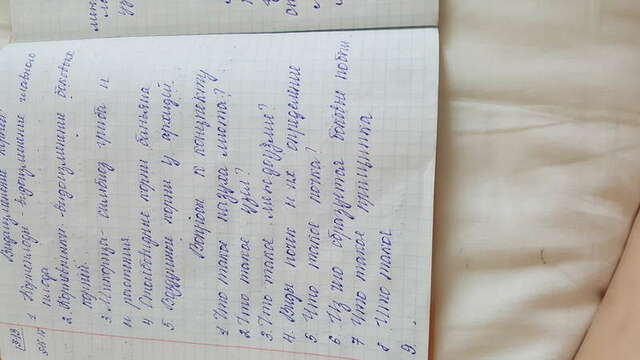 Видоизменение корней:
§13.
§16-17
1 Корнеплоды - видоизменение главного
плода
2. Корневынки - видоизменение боковых
корней.
3. Микориза - симбиоз гриба и
и растения
4 Столбовидные корни баньяна
5. Воздушные корни у орхидей.
Вопросы к конспекту
1 Что такое пазуха листа?
2 Что такое узел?
3. Что такое междоузлие?
4. Виды почек и их определение
5 Что такое почка?
6. Из чего образуется боковые побеги
7 Что такое прищипка
8. Что такое
9. .